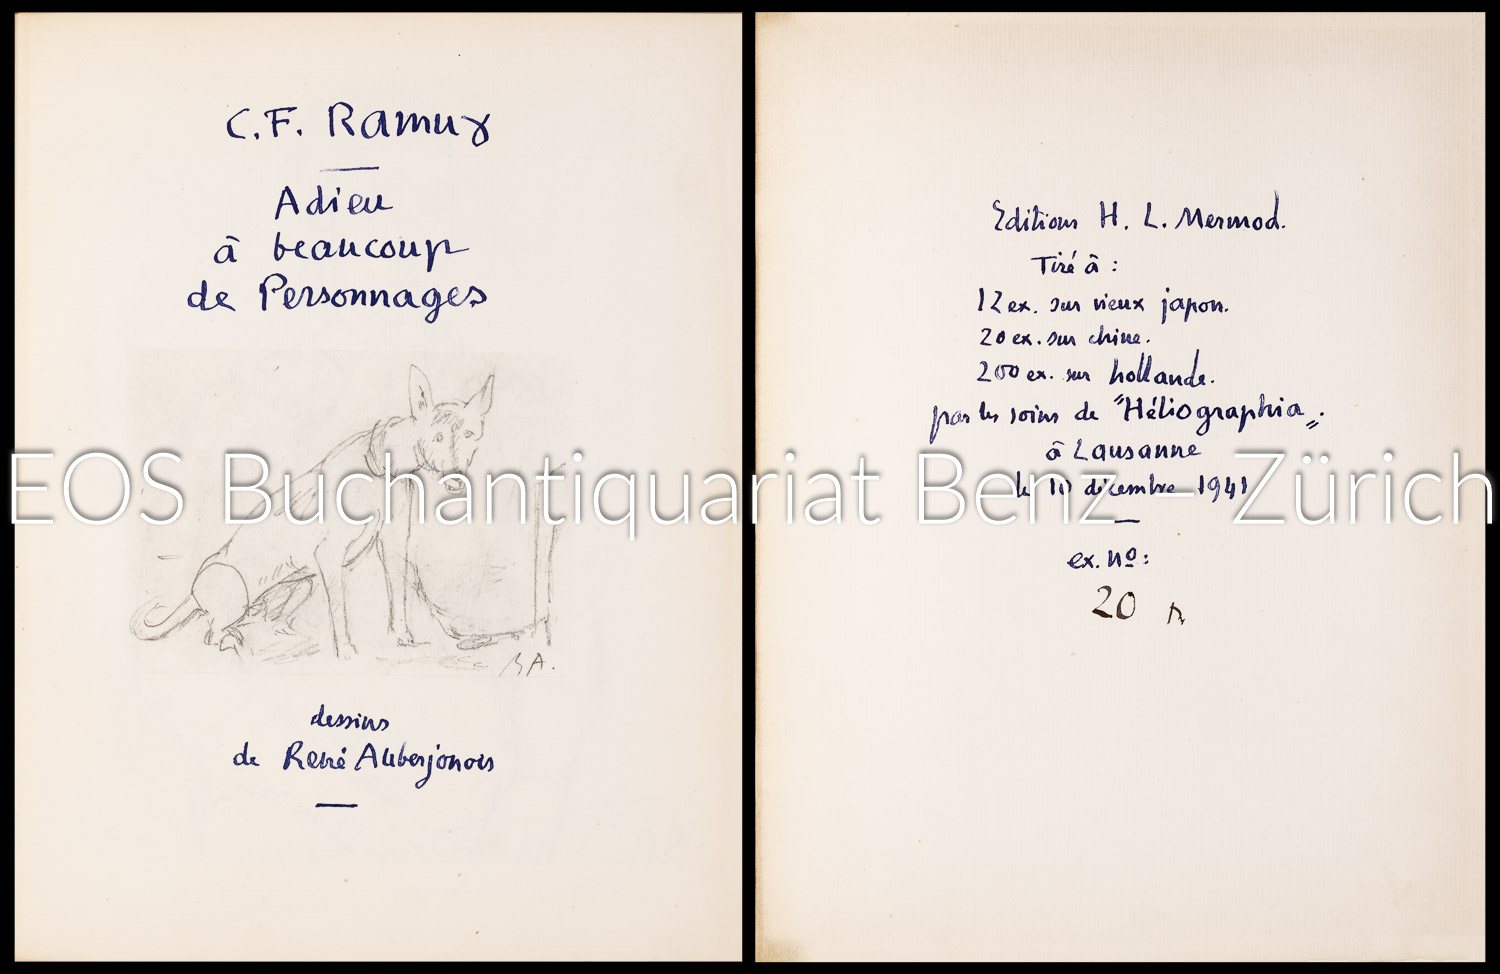 C.F. Ramuz
Adieu
à beaucoup
de Personnages
RA.
dessins
de René Auberjonois
Editions H. L. Mermod.
Tiré à :
12 ex. sur vieux japon.
20 ex. sur chine.
200 ex. sur hollande.
par les soins de "Héliographia".
à Lausanne
le 10 décembre 1941
ex. nº:
20
EOS Buchantiquariat Benz – Zürich